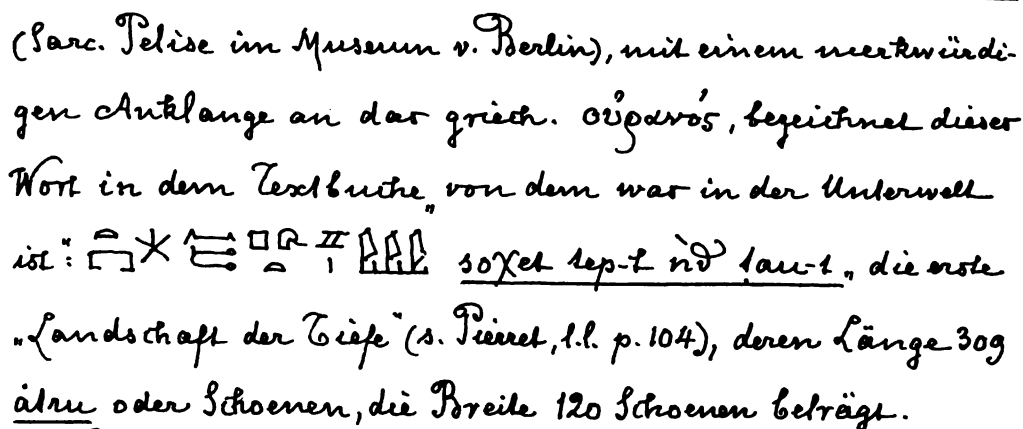 (Sarc. Pelise im Museum v. Berlin), mit einem merkwürdi-
gen Anklange an das griech. οὐρανός, bezeichnet dieses
Wort in dem Textbuche „von dem was in der Unterwelt
ist“: soχet tep-t die erste
„Landschaft der Tiefe“ (s. Pierret, l.l. p. 104), deren Länge 309
àtru oder Schoenen, die Breite 120 Schoenen beträgt.